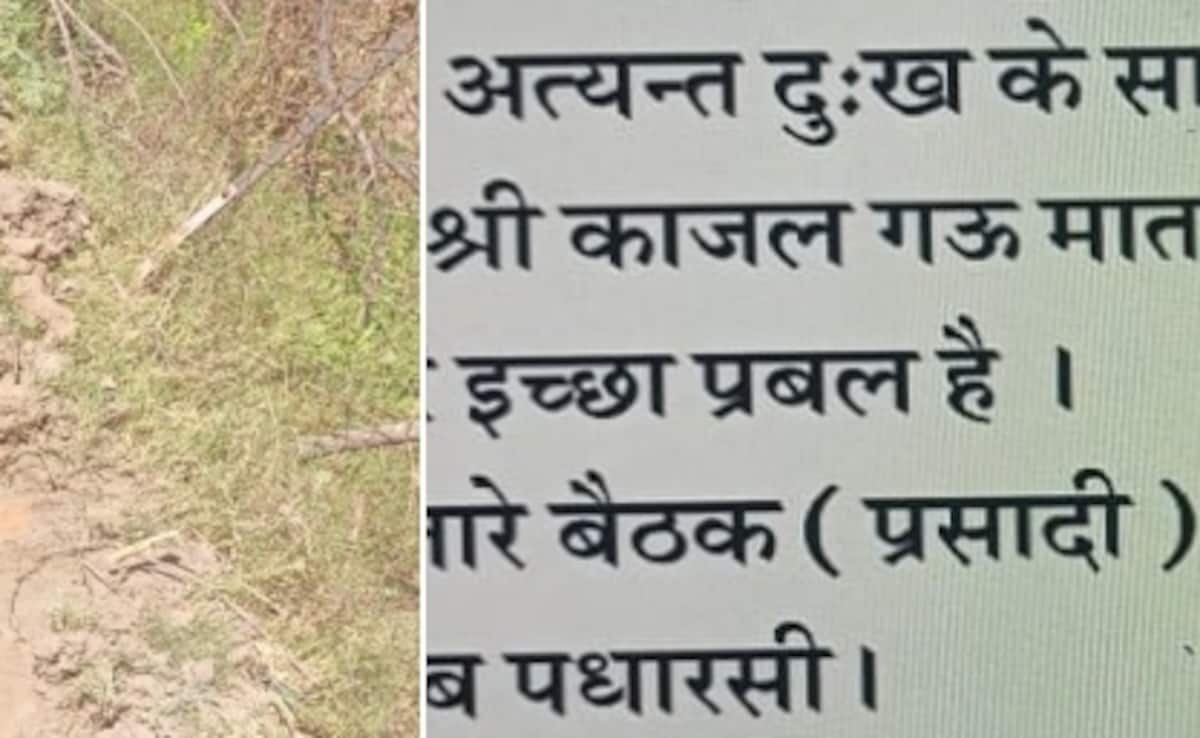 अत्यन्त दुःख के सा
श्री काजल गऊ मात
इच्छा प्रबल है ।
ारे बैठक ( प्रसादी )
ब पधारसी।